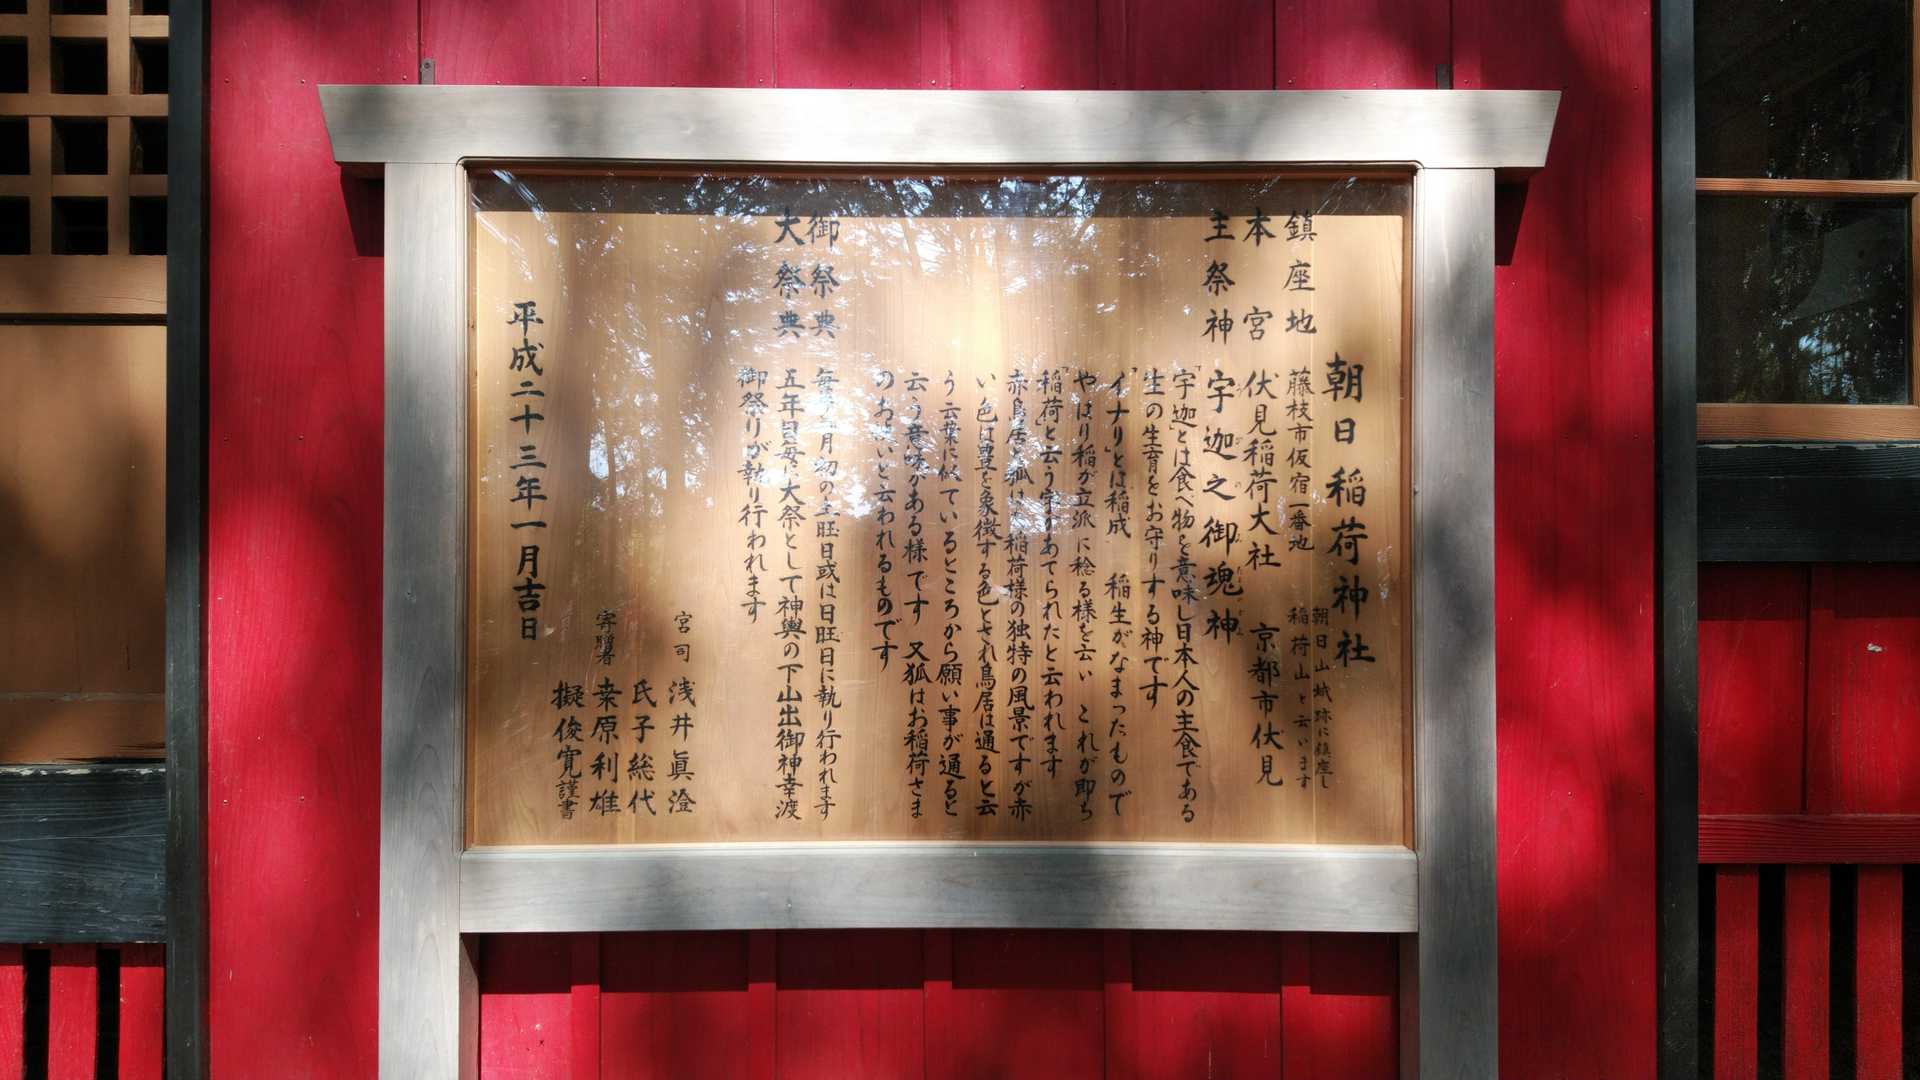 朝日稲荷神社
鎮座地 藤枝市仮宿一番地 朝日山城跡に鎮座し
稲荷山と云います
本宮 伏見稲荷大社 京都市伏見
主祭神 宇迦之御魂神
「宇迦」とは食べ物を意味し日本人の主食である
生の生育をお守りする神です
「イナリ」とは稲成 稲生がなまったもので
やはり稲が立派に稔る様を云い これが即ち
「稲荷」と云う字があてられたと云われます
赤鳥居と狐は 稲荷様の独特の風景ですが赤
い色は豊を象徴する色とされ鳥居は通ると云
う言葉に似ているところから願い事が通ると
云う意味がある様です 又狐はお稲荷さま
のお使いと云われるものです
御祭典 毎年 月初の土旺日或は日旺日に執り行われます
大祭典 五年目毎に大祭として神輿の下山出御神幸渡
御祭りが執り行われます
宮司 浅井眞澄
氏子総代
寄贈者 桒原利雄
擬俊寛謹書
平成二十三年一月吉日